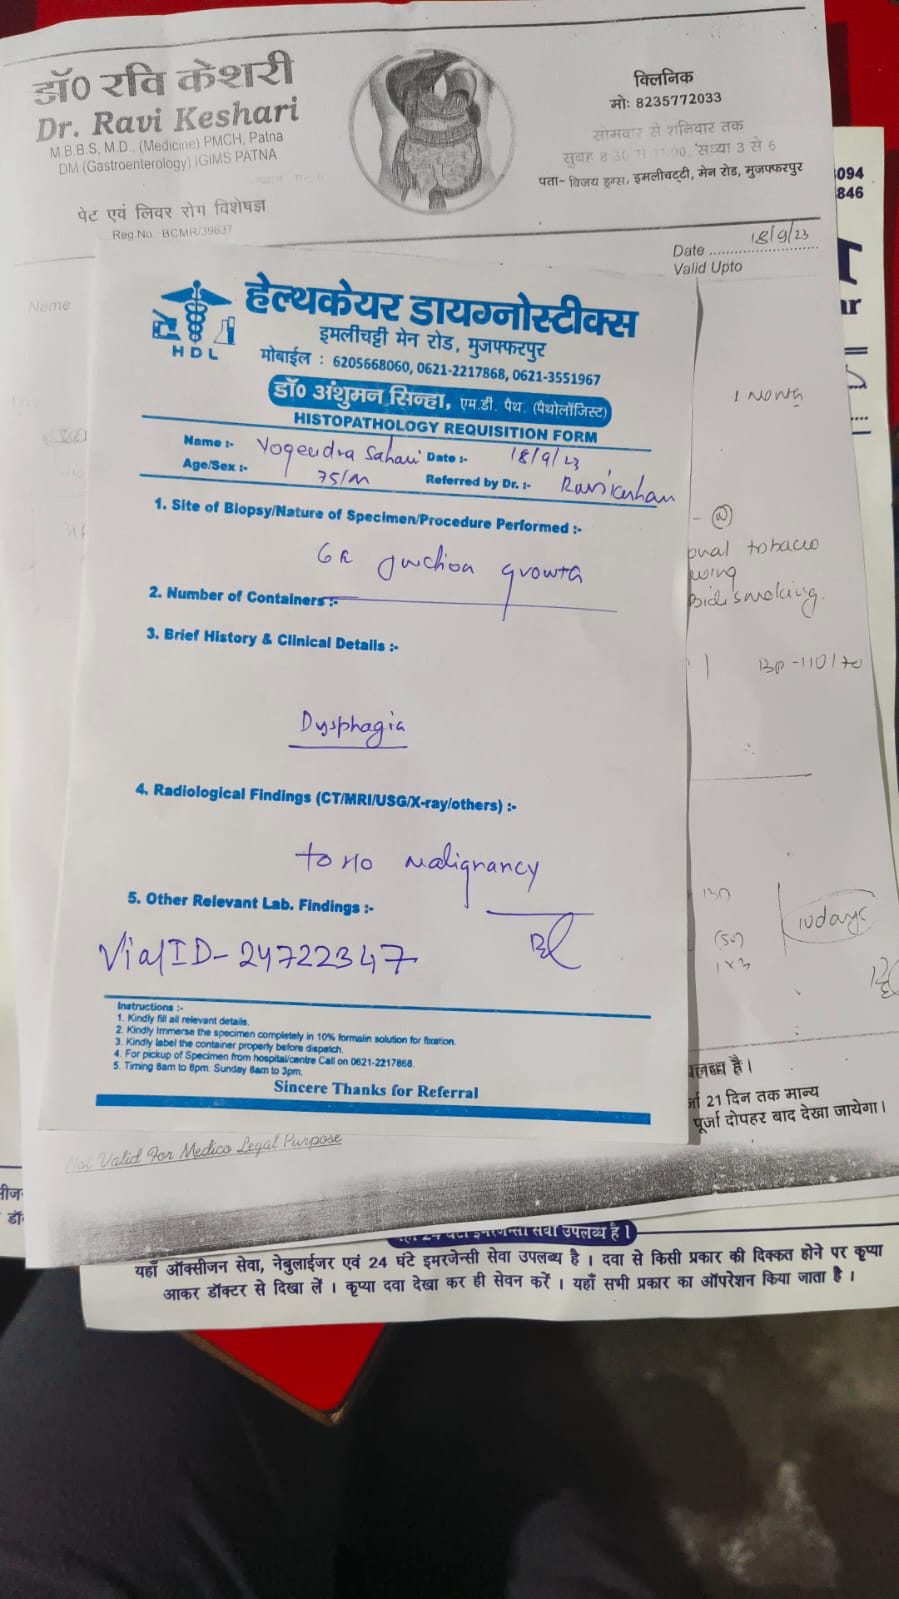 डॉ0 रवि केशरी
Dr. Ravi Keshari
M.B.B.S, M.D., (Medicine) PMCH, Patna
DM (Gastroenterology) IGIMS PATNA
पेट एवं लिवर रोग विशेषज्ञ
Reg.No. BCMR/39637
क्लिनिक
मो: 8235772033
सोमवार से शनिवार तक
सुबह 8:30 से 11:00, संध्या 3 से 6
पता- विजय ड्रग्स, इमलीचट्टी, मेन रोड, मुजफ्फरपुर
094
846
Date 18/9/23
Valid Upto
Name
हेल्थकेयर डायग्नोस्टीक्स
HDL
इमलीचट्टी मेन रोड, मुजफ्फरपुर
मोबाईल : 6205668060, 0621-2217868, 0621-3551967
डॉ0 अंशुमन सिन्हा, एम.डी. पैथ. (पैथोलॉजिस्ट)
HISTOPATHOLOGY REQUISITION FORM
Name :- Yogendra Sahani Date :- 18/9/23
Age/Sex :- 75/M Referred by Dr. :- Ravi Keshari
1. Site of Biopsy/Nature of Specimen/Procedure Performed :-
GE junction growth
2. Number of Containers :-
3. Brief History & Clinical Details :-
Dysphagia
4. Radiological Findings (CT/MRI/USG/X-ray/others) :-
to r/o malignancy
5. Other Relevant Lab. Findings :-
Vial ID-24722347
Instructions :-
1. Kindly fill all relevant details.
2. Kindly Immerse the specimen completely in 10% formalin solution for fixation.
3. Kindly label the container properly before dispatch.
4. For pickup of Specimen from hospital/centre Call on 0621-2217868.
5. Timing 8am to 8pm. Sunday 8am to 3pm.
Sincere Thanks for Referral
tobacco
Bidi smoking.
BP -110/70
10days
है।
21 दिन तक मान्य
पूर्जा दोपहर बाद देखा जायेगा।
Not Valid For Medico Legal Purpose
24 घंटा इमरजेन्सी सेवा उपलब्ध है।
यहाँ ऑक्सीजन सेवा, नेबुलाईजर एवं 24 घंटे इमरजेन्सी सेवा उपलब्ध है। दवा से किसी प्रकार की दिक्कत होने पर कृप्या
आकर डॉक्टर से दिखा लें। कृप्या दवा देखा कर ही सेवन करें। यहाँ सभी प्रकार का ऑपरेशन किया जाता है।